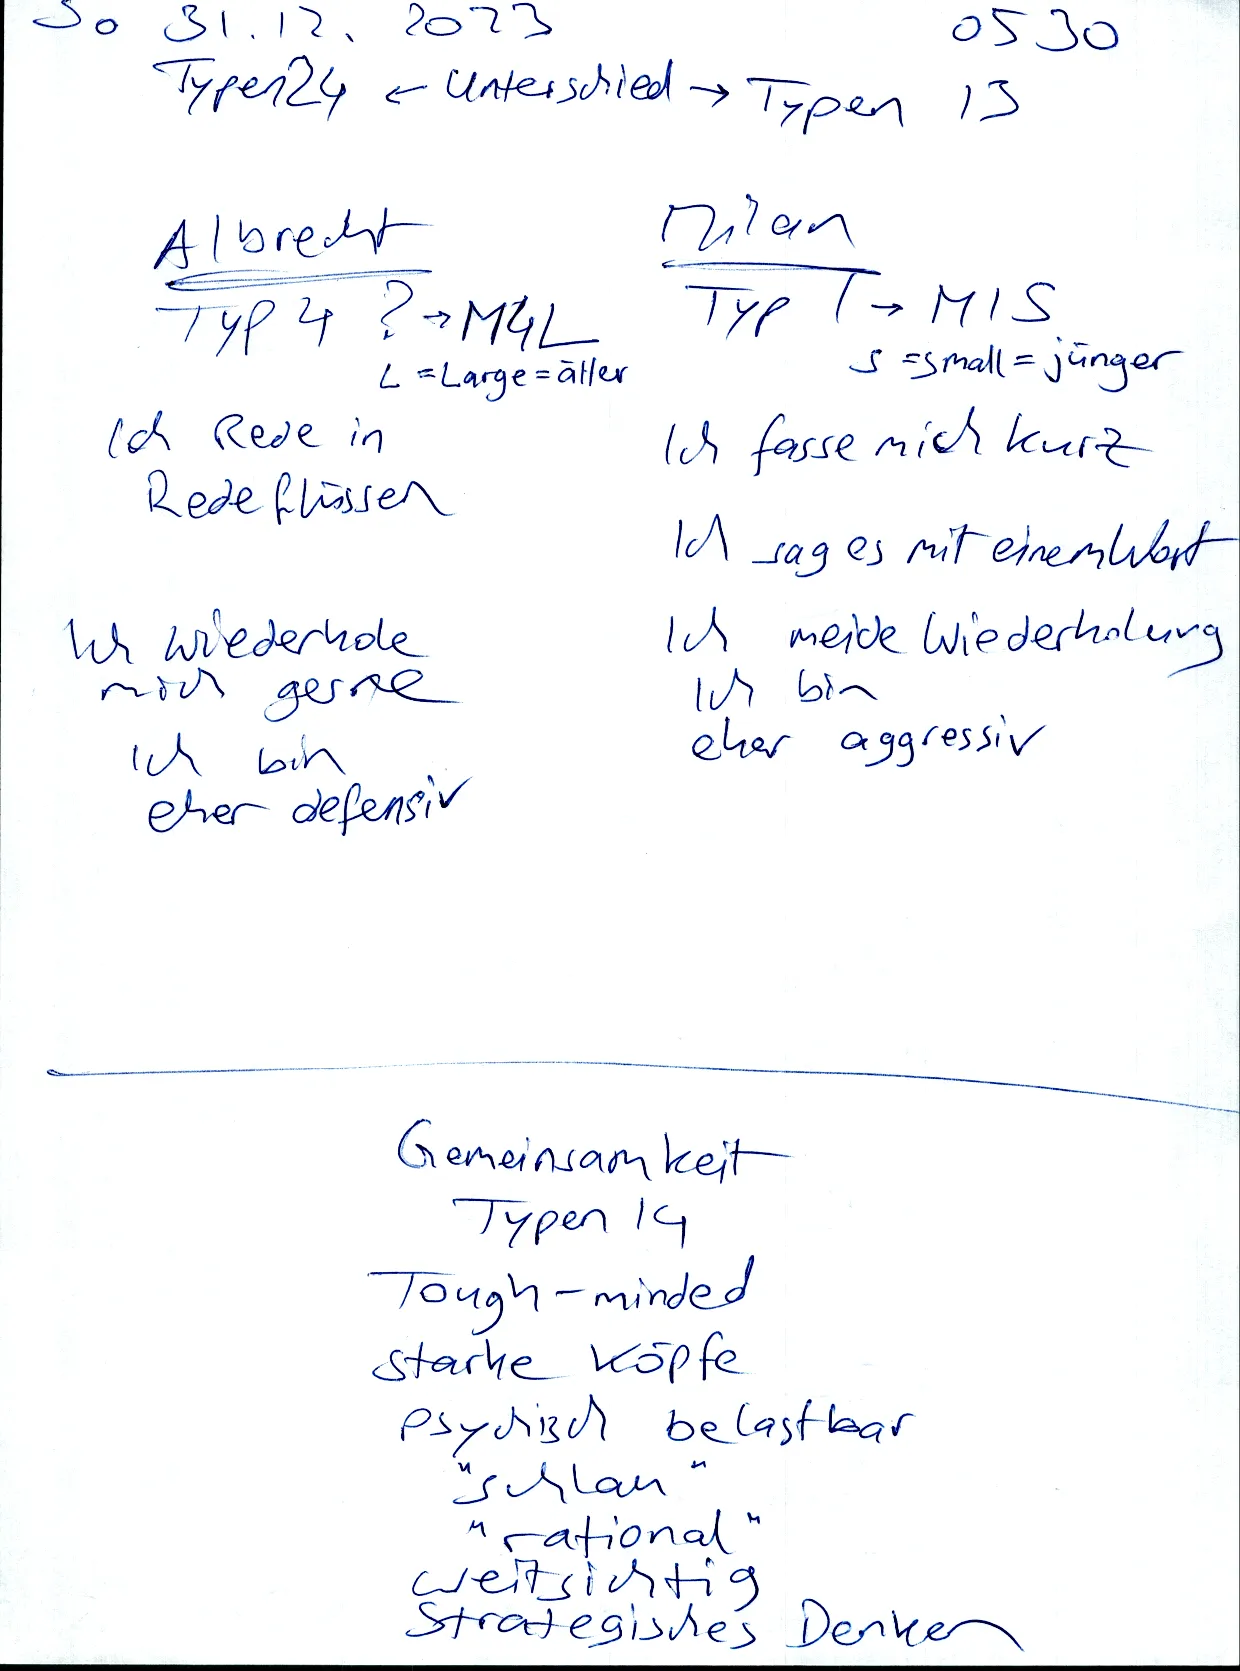 So 31.12. 2023 0530
Typen 24 ← Unterschied → Typen 13
Albrecht
Typ 4 ? → M4L
L = Large = älter
Ich Rede in
Redeflüssen
Ich wiederhole
mich gerne
Ich bin
eher defensiv
Milan
Typ 1 → M1S
S = small = jünger
Ich fasse mich kurz
Ich sag es mit einem Wort
Ich meide Wiederholung
Ich bin
eher aggressiv
Gemeinsamkeit
Typen 14
Tough-minded
starke Köpfe
psychisch belastbar
"schlau"
"rational"
weitsichtig
Strategisches Denken